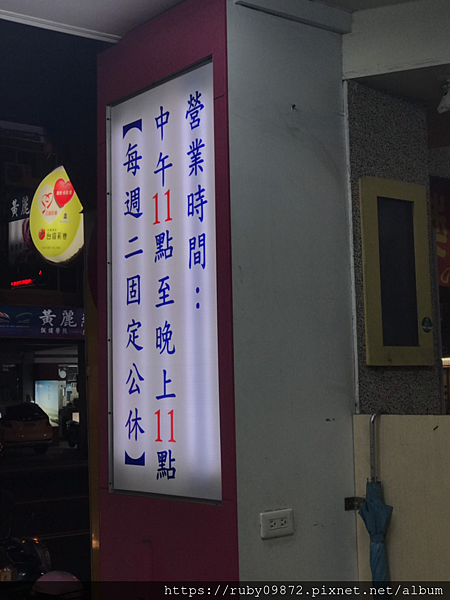 營業時間：
中午11點至晚上11點
【每週二固定公休】
黃麗
台灣彩券
黃麗
https://ruby09872.pixnet.net/album